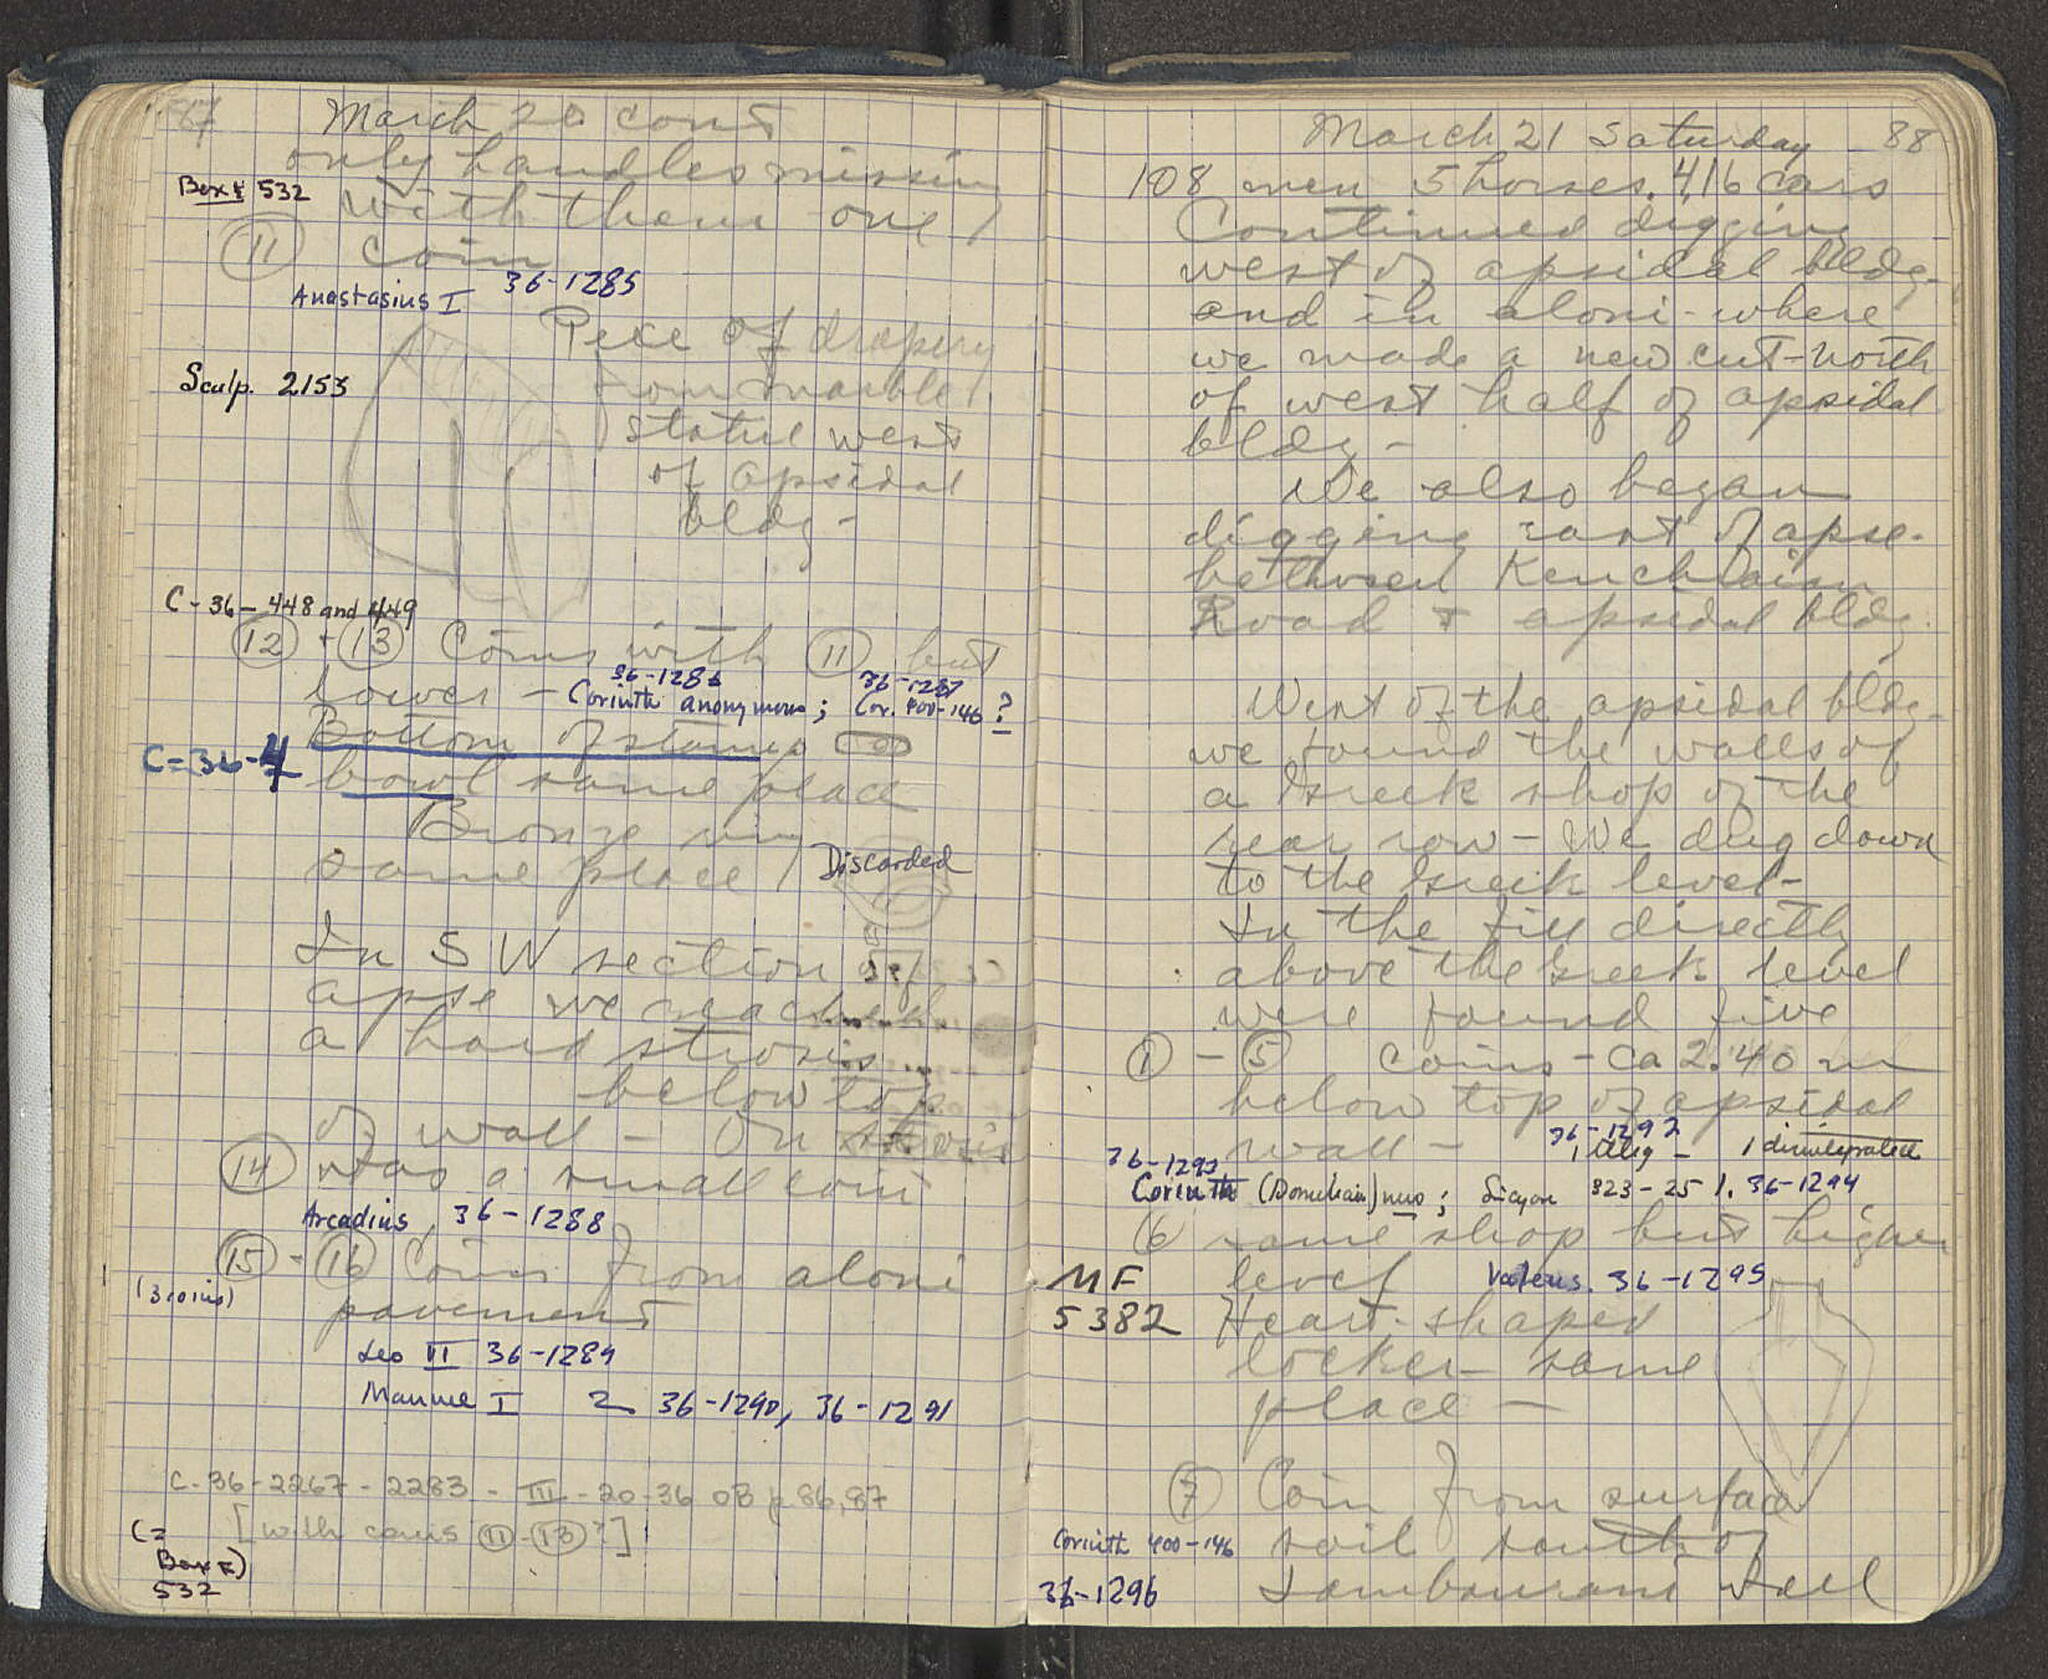 87
March 20 cont
only handles missing
Box 532
with them one
11 coin
Anastasius I 36-1285
Piece of drapery
Sculp. 2153
from marble
statue west
of apsidal
bldg -
C-36-448 and 449
12 + 13 Coins with 11 but
36-1286 36-1287
lower - Corinth anonymous; Cor. 400-146 ?
Bottom of stamp
C-36-4
bowl same place
Bronze ring
same place Discarded
In SW section of
apse we reached
a hard strosis ...
below top
of wall - On strosis
14 was a small coin
Arcadius, 36-1288
15 - 16 Coins from aloni
(3 coins)
pavement
Leo VI 36-1289
Manuel I 2 36-1290, 36-1291
C-36-2267-2283 - III-20-36 OB p 86,87
[with coins 11-13?]
(=
Box
532
March 21 Saturday 88
108 men 5 horses. 416 cars
Continued digging
west of apsidal bldg-
and in aloni - where
we made a new cut - north
of west half of apsidal
bldg -
We also began
digging east of apse.
between Kenchraian
Road + apsidal bldg.
West of the apsidal bldg-
we found the walls of
a Greek shop of the
rear row - We dug down
to the Greek level -
In the fill directly
above the Greek level
were found five
1 - 5 coins - ca 2.40 m
below top of apsidal
36-1292
wall - 1 illeg - 1 disintegrated
36-1293
Corinth (Domitian); Sicyon 323-251. 36-1294
6 same shop but higher
MF level Valens. 36-1295
5382 Heart-shaped
locket - same
place -
7 Coin from surface
Corinth 400-146 soil south of
36-1296